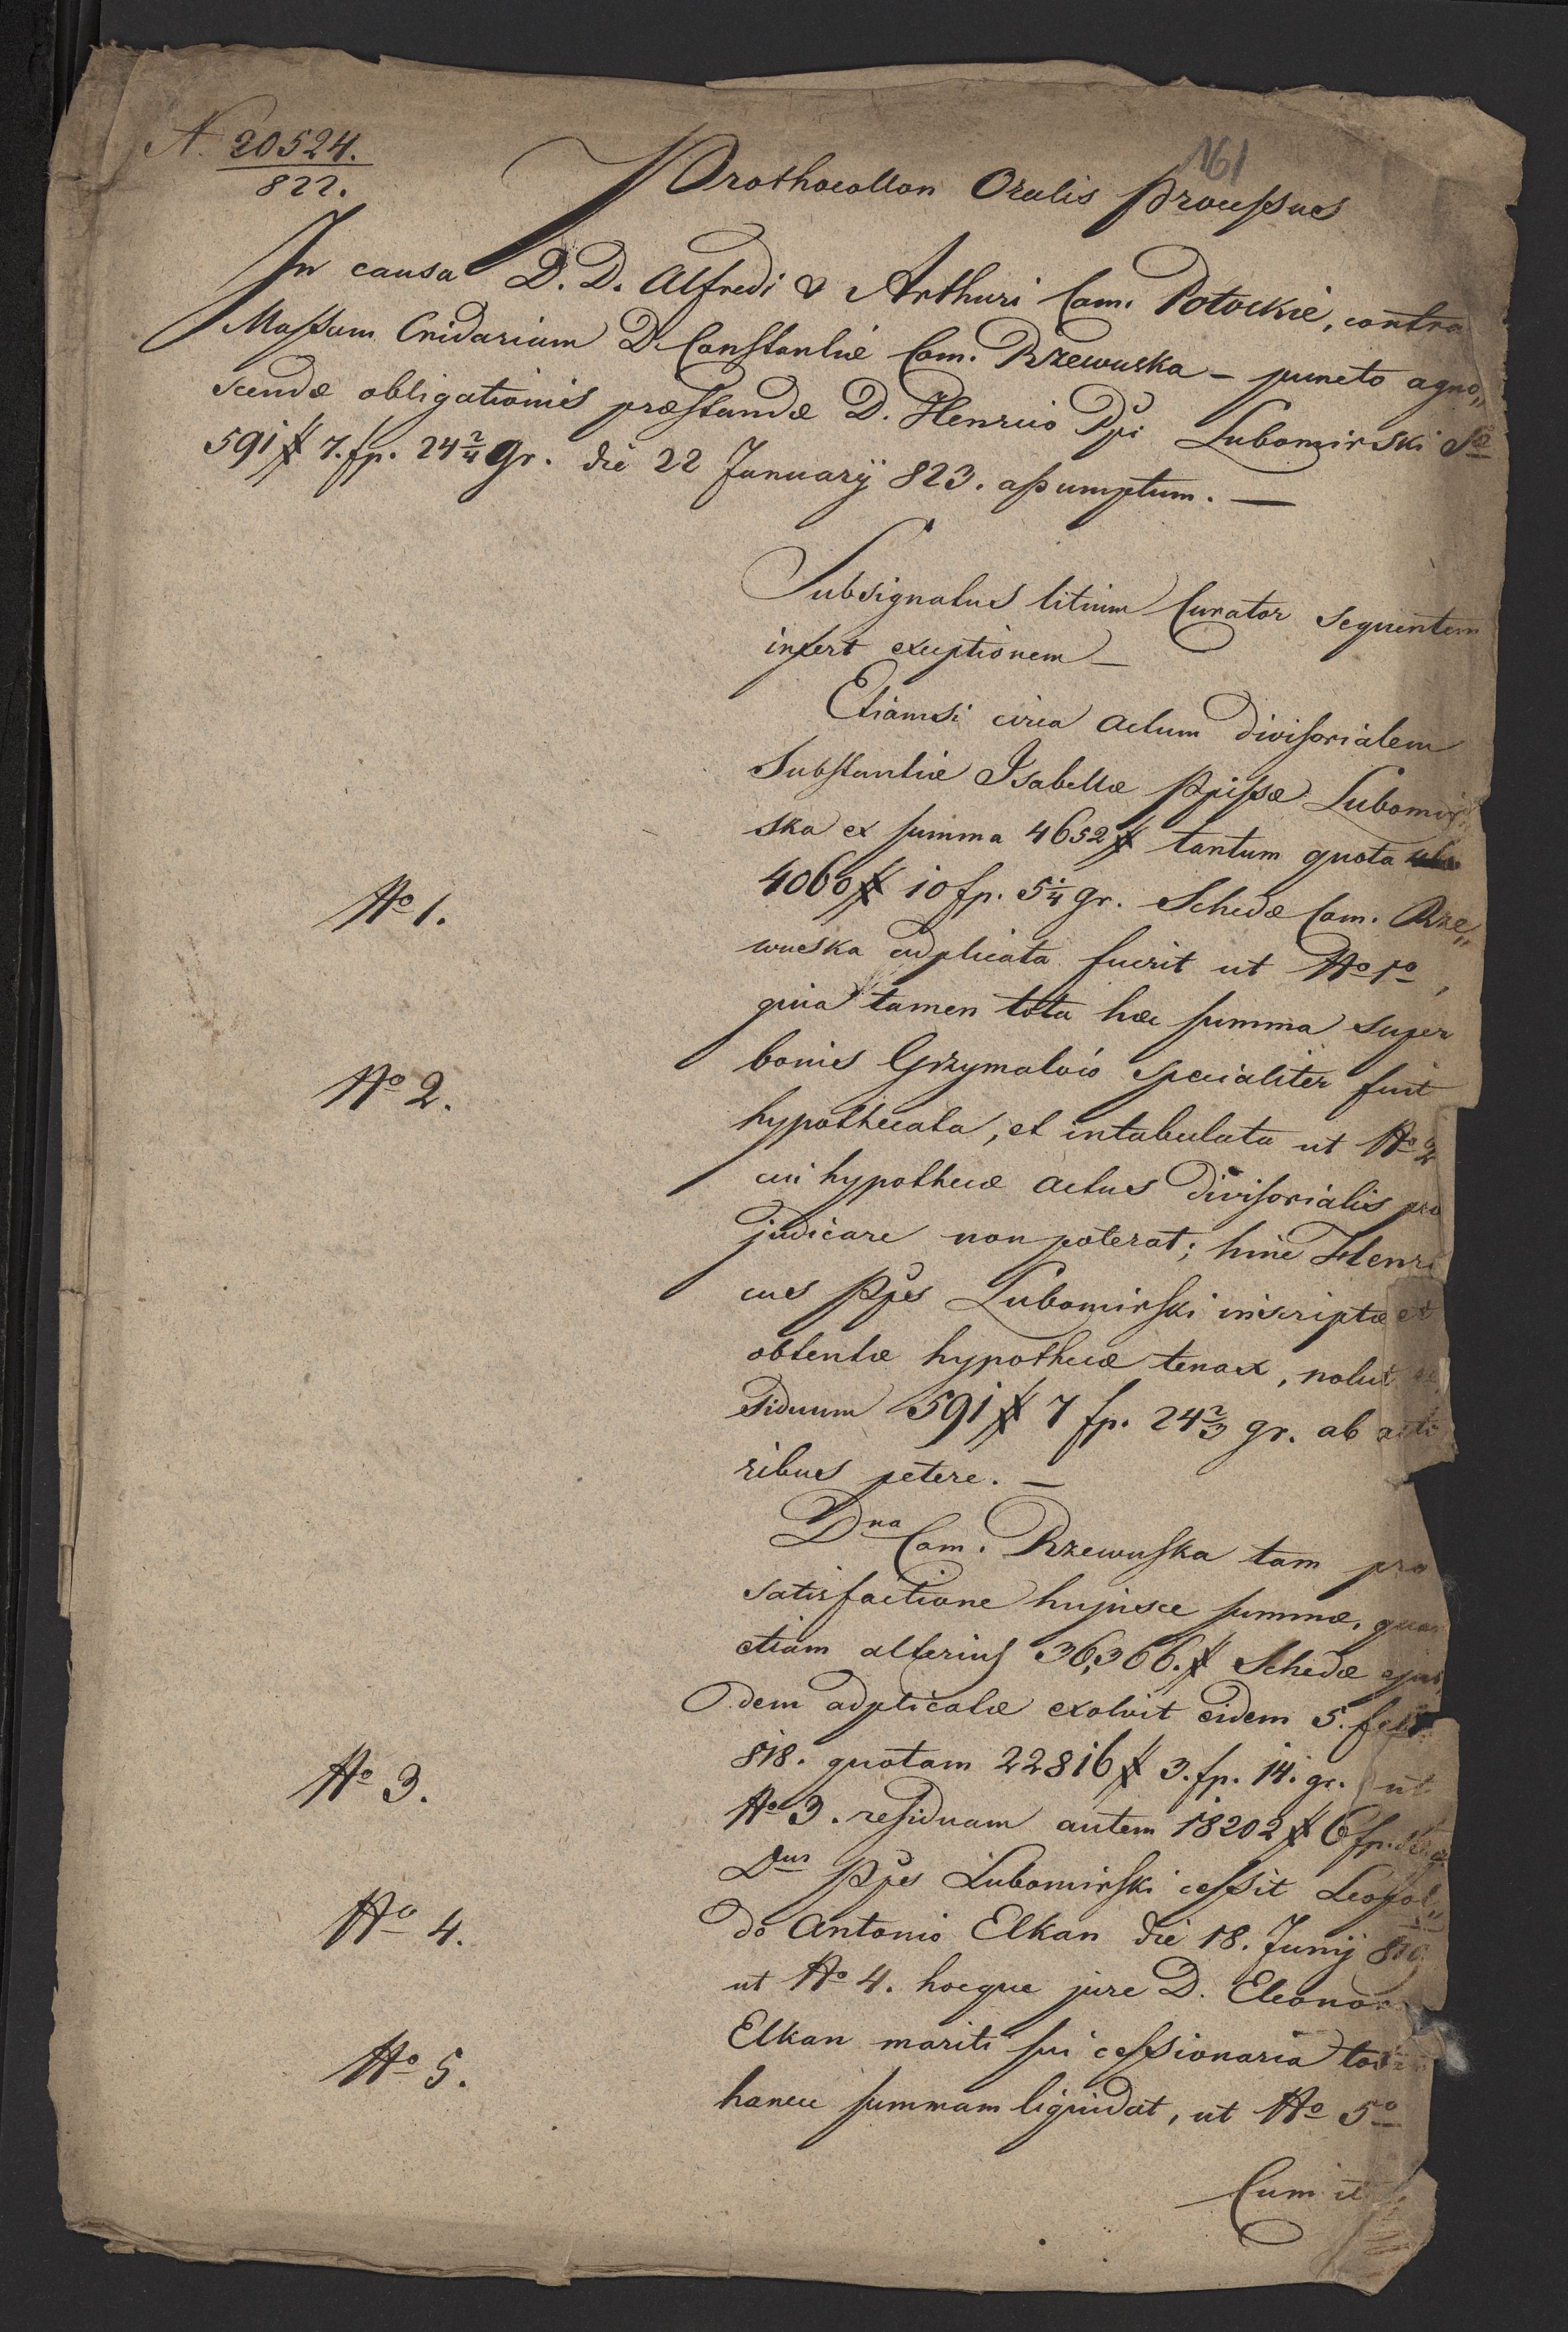 N. 20524.
822.
161
Prothocollon Oralis Processus
In causa D. D. Alfredi & Arthuri Com. Potockie, contra
Massam Cridariam D. Constantiæ Com. Rzewuska – puncto agno„
scendæ obligationis præstandæ D. Henrico Ppi Lubomirski Sæ
591 # 7. fp. 24 2/4 gr. die 22 Januarÿ 823. assumptum. —
Subsignatus litium Curator sequentem
infert exceptionem –
Etiamsi circa actum divisorialem
Substantiæ Isabellæ Ppissæ Lubomir„
ska ex summa 4652 # tantum quota
4060 # 10 fp. 5 1/4 gr. Schedæ Com. Rze„
No 1.
wuska adplicata fuerit ut No 1o,
quia tamen tota hæc summa super
bonis Grzymalóio specialiter fuit
No 2.
hypothecata, et intabulata ut No 2
cui hypothecæ actus divisorialis præ
judicare non poterat; hinc Henri
cus Ppes Lubomirski inscriptæ et
obtentæ hypothecæ tenax, noluit re
siduum 591 # 7 fp. 24 2/3 gr. ab acto
ribus petere. —
Dna Com. Rzewuska tam pro
satisfactione hujusce summæ, quam
etiam alterius 36,366. # Schedæ ejus
dem adplicatæ exolvit eidem 5. febr.
818. quotam 22816 # 3. fp. 14. gr. ut
No 3.
No 3. residuam autem 18202 # 6 fp.
Dus Ppes Lubomirski cessit Leopol„
do Antonio Elkan die 18. Junÿ 819.
No 4.
ut No 4. hocque jure D. Eleonora
Elkan mariti sui cessionaria totam
No 5.
hancce summam liquidat, ut No 5o
Cum